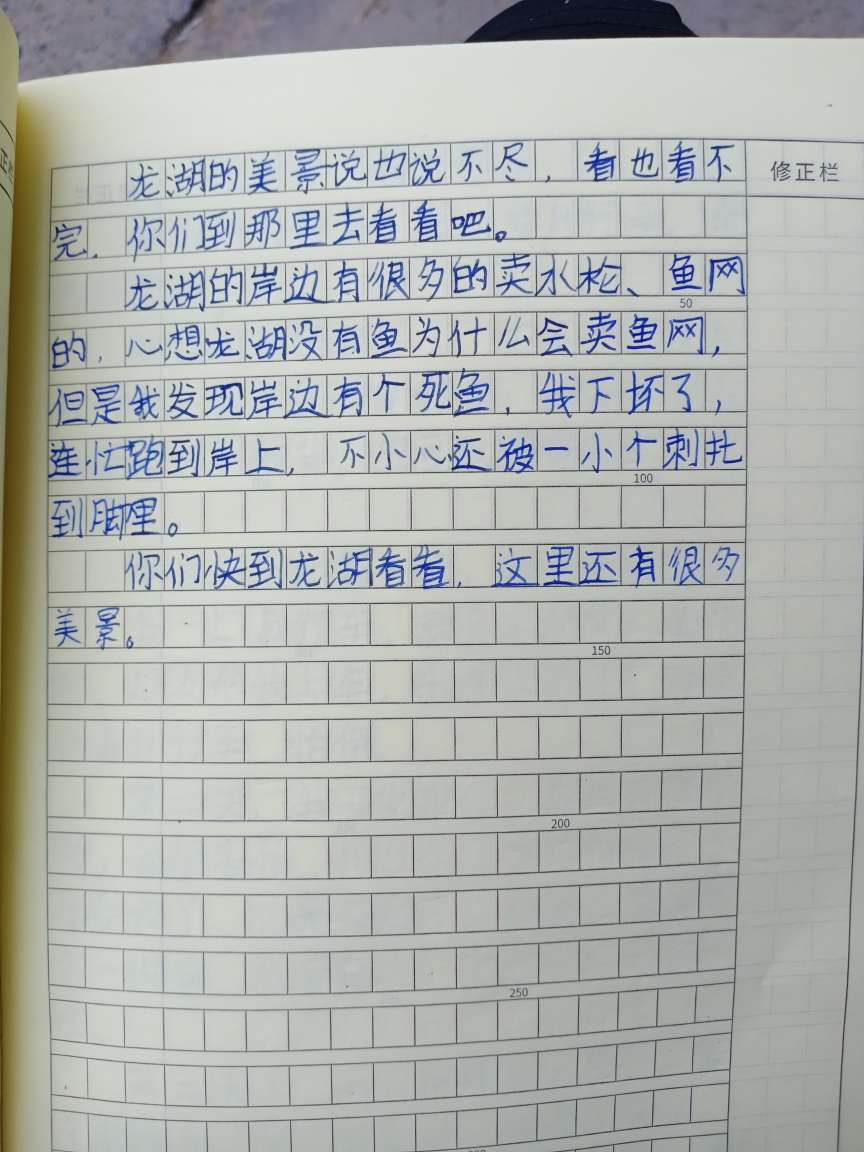 龙湖的美景说也说不尽，看也看不
修正栏
完，你们到那里去看看吧。
龙湖的岸边有很多的卖水枪、鱼网
50
的，心想龙湖没有鱼为什么会卖鱼网，
但是我发现岸边有个死鱼，我下坏了，
连忙跑到岸上，不小心还被一小个刺扎
100
到脚里。
你们快到龙湖看看，这里还有很多
美景。
150
200
250